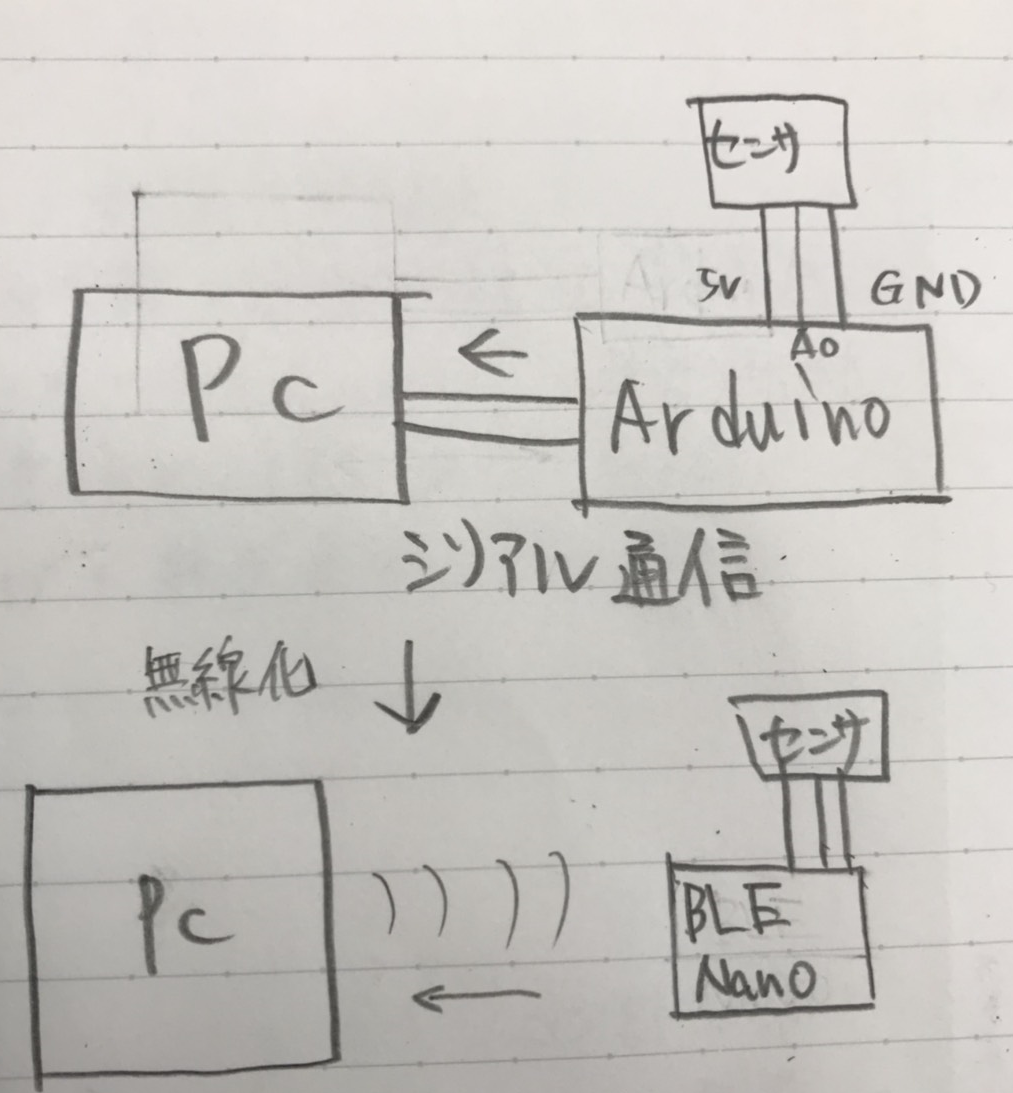 センサ
5V
GND
A0
Pc
Arduino
シリアル通信
無線化
センサ
Pc
BLE
Nano